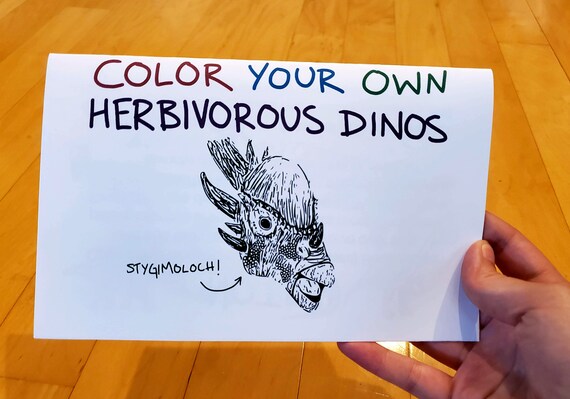 COLOR YOUR OWN
HERBIVOROUS DINOS
STYGIMOLOCH!